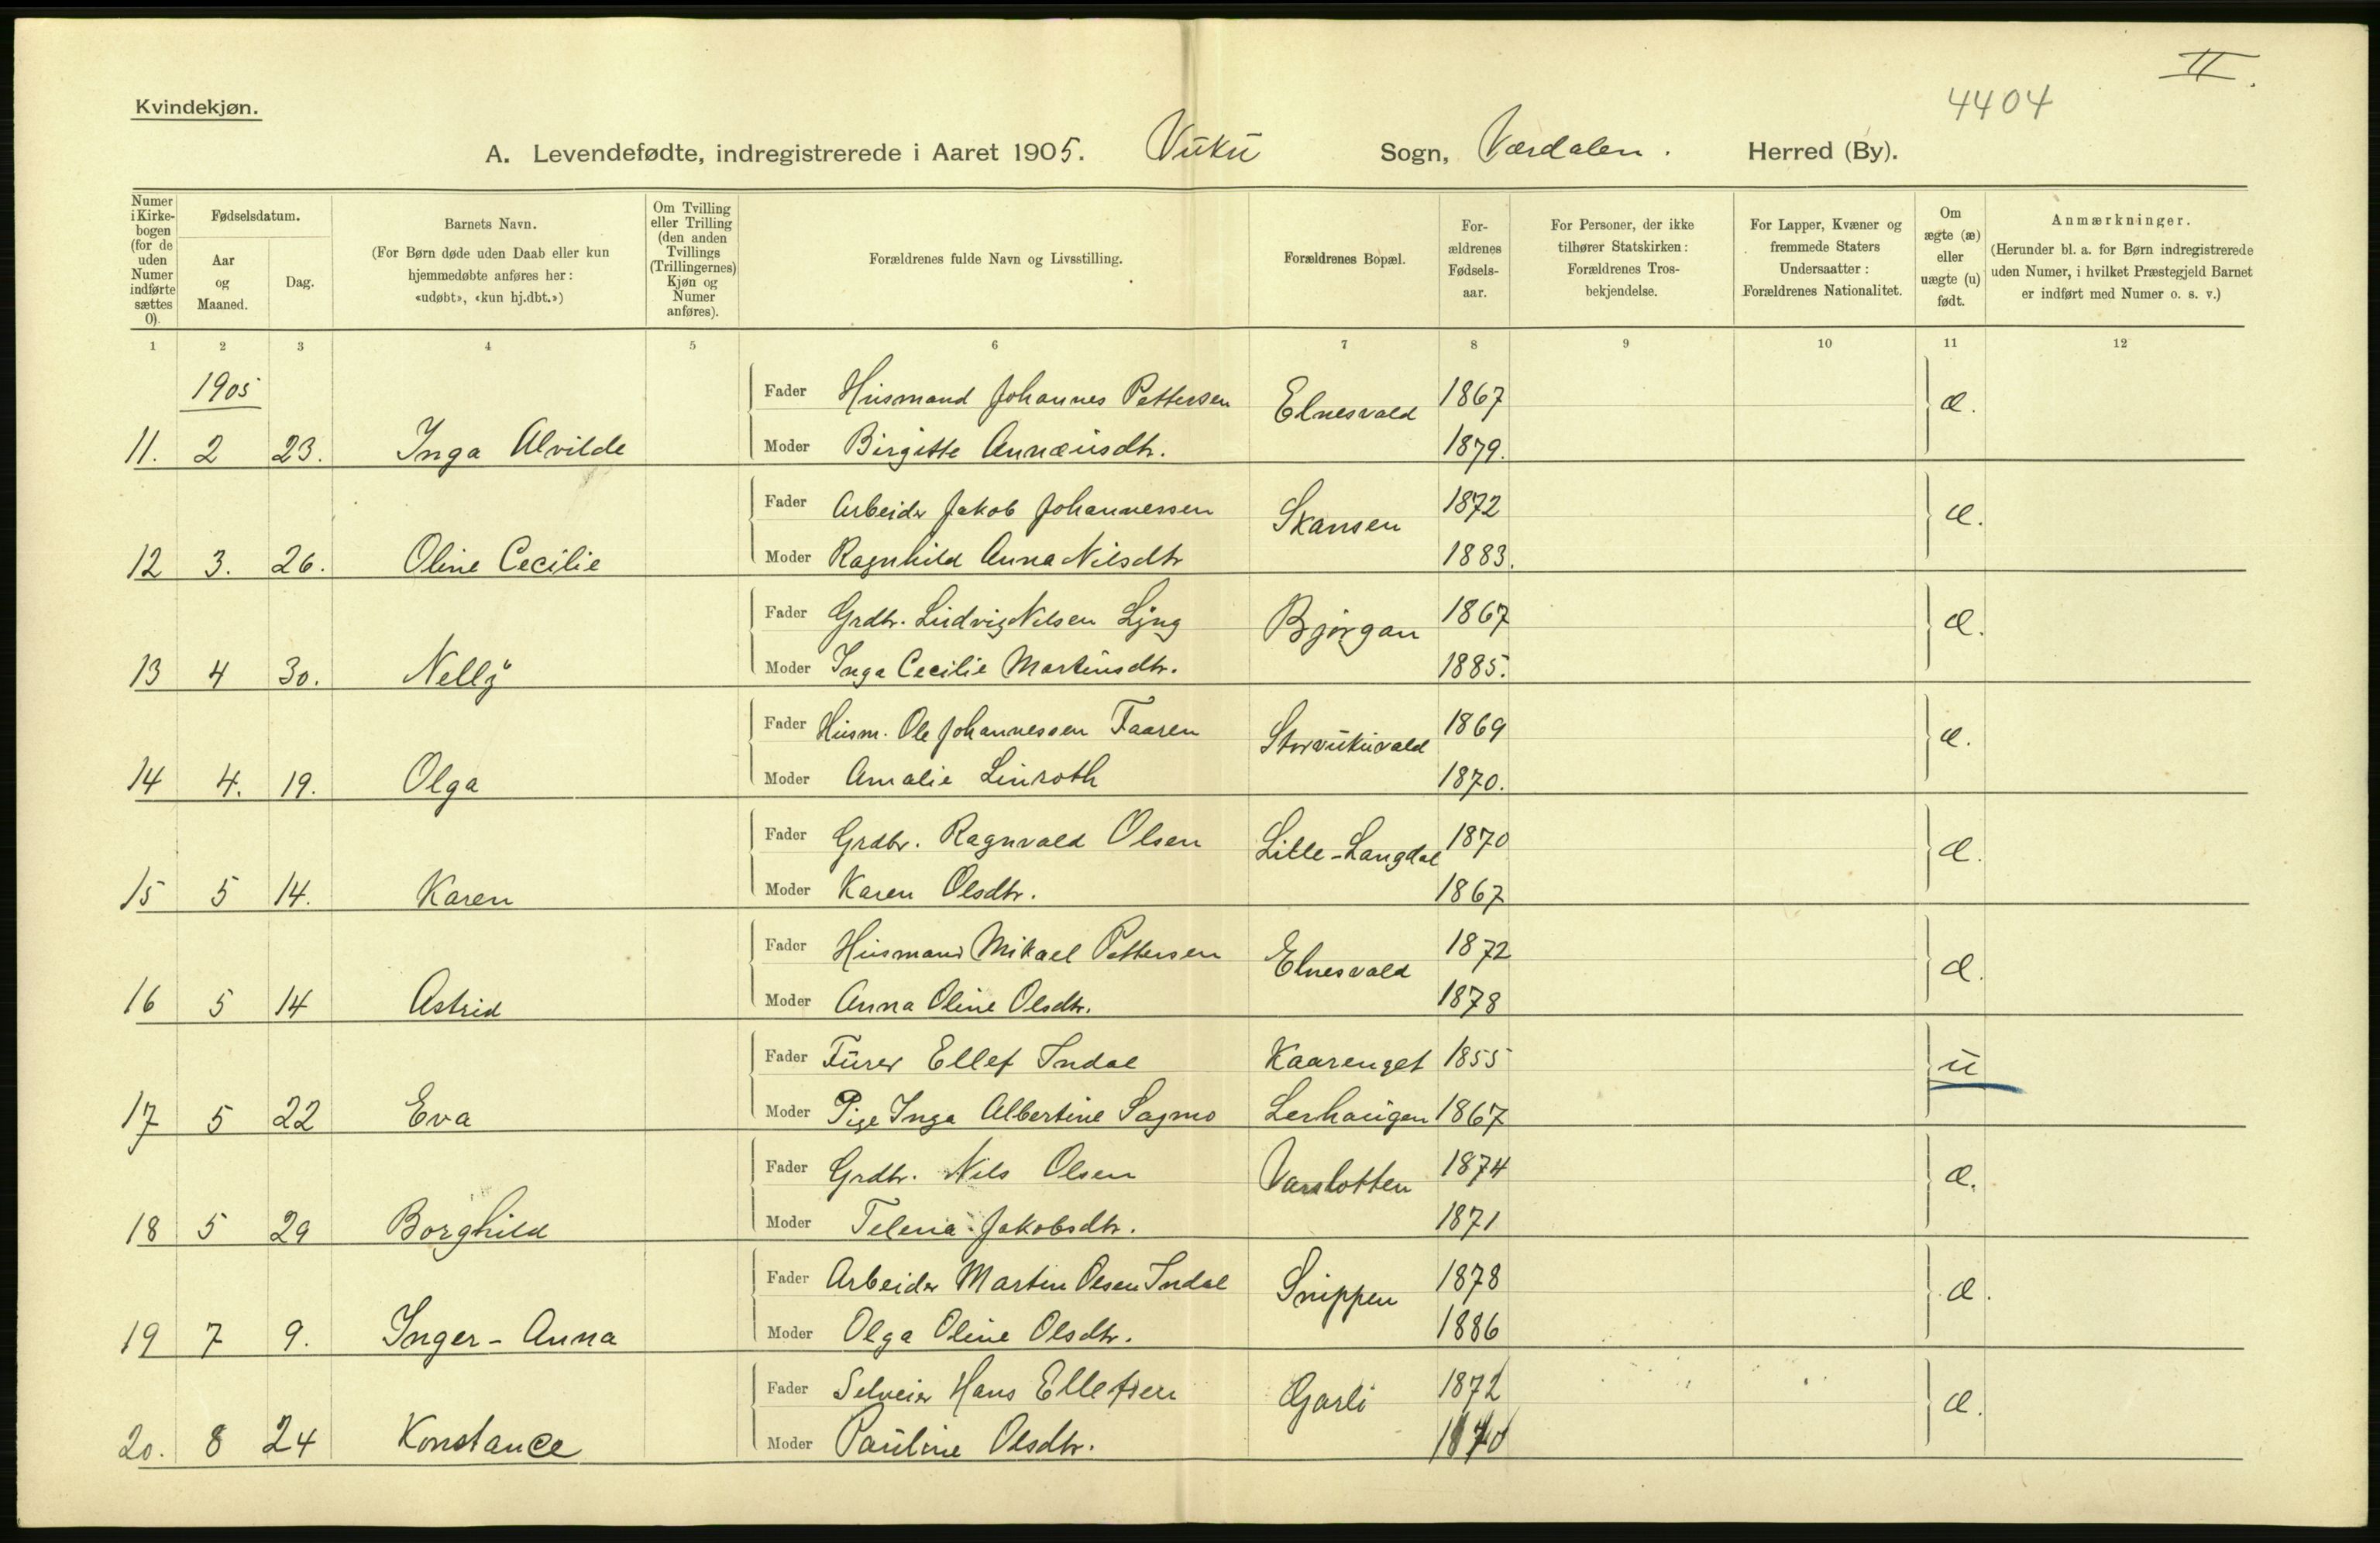 II.
4404
Kvindekjøn.
A. Levendefødte, indregistrerede i Aaret 1905. Vuku Sogn, Værdalen. Herred (By).
Numer i Kirkebogen (for de uden Numer indførte sættes 0). Fødselsdatum. Aar og Maaned. Dag. Barnets Navn. (For Børn døde uden Daab eller kun hjemmedøbte anføres her: «udøbt», «kun hj.dbt.») Om Tvilling eller Trilling (den anden Tvillings (Trillingernes) Kjøn og Numer anføres). Forældrenes fulde Navn og Livsstilling. Forældrenes Bopæl. Forældrenes Fødselsaar. For Personer, der ikke tilhører Statskirken: Forældrenes Trosbekjendelse. For Lapper, Kvæner og fremmede Staters Undersaatter: Forældrenes Nationalitet. Om ægte (æ) eller uægte (u) født. Anmærkninger. (Herunder bl. a. for Børn indregistrerede uden Numer, i hvilket Præstegjeld Barnet er indført med Numer o. s. v.)
1 2 3 4 5 6 7 8 9 10 11 12
1905
Fader Husmand Johannes Pettersen Elnesvald 1867 æ.
11. 2 23. Inga Alvilde Moder Birgitte Annæusdtr. 1879.
Fader Arbeider Jakob Johannessen Skansen 1872 æ.
12 3. 26. Oline Cecilie Moder Ragnhild Anna Nilsdtr 1883.
Fader Grdbr. Ludvig Nilsen Ljng Bjørgan 1867 æ.
13 4 30. Nelly Moder Inga Cecilie Martinsdtr. 1885.
Fader Husm. Ole Johannessen Faaren Storvukuvald 1869 æ.
14 4. 19. Olga Moder Amalie Linroth 1870.
Fader Grdbr. Ragnvald Olsen Lille-Langdal 1870 æ.
15 5 14. Karen Moder Karen Olsdtr. 1867
Fader Husmand Mikael Pettersen Elnesvald 1872 æ.
16 5 14 Astrid Moder Anna Oline Olsdtr. 1878
Fader Furer Ellef Indal Kaarenget 1855 u
17 5 22 Eva Moder Pige Inga Albertine Sagmo Lerhaugen 1867
Fader Grdbr. Nils Olsen Varslotten 1874 æ.
18 5 29 Borghild Moder Telena Jakobsdtr. 1871
Fader Arbeider Martin Olsen Indal Snippen 1878 æ.
19 7 9. Inger-Anna Moder Olga Oline Olsdtr. 1886
Fader Selveier Hans Ellefsen Garli 1872 æ.
20. 8 24 Konstance Moder Pauline Olsdtr. 1870